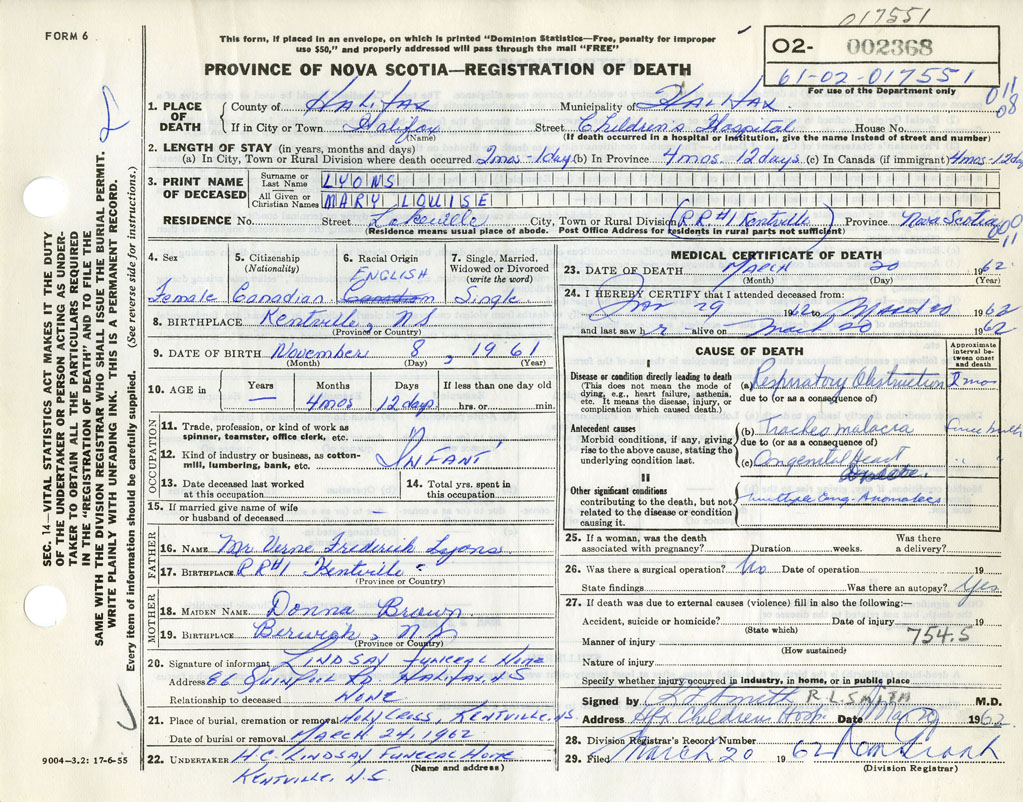 017551
FORM 6
This form, if placed in an envelope, on which is printed "Dominion Statistics—Free, penalty for improper
use $50," and properly addressed will pass through the mail "FREE"
02- 002368
61-02-017551
For use of the Department only
PROVINCE OF NOVA SCOTIA—REGISTRATION OF DEATH
011
08
1. PLACE OF DEATH { County of Halifax Municipality of Halifax
If in City or Town Halifax Street Children's Hospital House No.
(Name) (If death occurred in a hospital or institution, give the name instead of street and number)
2. LENGTH OF STAY (in years, months and days)
(a) In City, Town or Rural Division where death occurred 2mos-1day (b) In Province 4mos 12days (c) In Canada (if immigrant) 4mos-12day
3. PRINT NAME OF DECEASED { Surname or Last Name LYONS
All Given or Christian Names MARY LOUISE
RESIDENCE No. Street Lakeville City, Town or Rural Division (R.R.#1 Kentville) Province Nova Scotia
(Residence means usual place of abode. Post Office Address for residents in rural parts not sufficient)
000
11
4. Sex Female
5. Citizenship (Nationality) Canadian
6. Racial Origin ENGLISH Canadian
7. Single, Married, Widowed or Divorced (write the word) Single
8. BIRTHPLACE Kentville, NS
(Province or Country)
9. DATE OF BIRTH November 8, 1961
(Month) (Day) (Year)
10. AGE in { Years — Months 4mos Days 12days If less than one day old hrs. or min.
OCCUPATION
11. Trade, profession, or kind of work as spinner, teamster, office clerk, etc.
12. Kind of industry or business, as cotton-mill, lumbering, bank, etc. INFANT
13. Date deceased last worked at this occupation
14. Total yrs. spent in this occupation
15. If married give name of wife or husband of deceased —
FATHER
16. NAME Mr Verne Frederick Lyons
17. BIRTHPLACE R.R#1 Kentville
(Province or Country)
MOTHER
18. MAIDEN NAME Donna Brown
19. BIRTHPLACE Berwick, NS
(Province or Country)
20. Signature of informant LINDSAY FUNERAL HOME
Address 86 QUINPOOL RD HALIFAX, NS
Relationship to deceased NONE
21. Place of burial, cremation or removal HOLY CROSS, KENTVILLE, NS
Date of burial or removal MARCH 24, 1962
22. UNDERTAKER H.C. LINDSAY FUNERAL HOME
(Name and address)
KENTVILLE, N.S.
MEDICAL CERTIFICATE OF DEATH
23. DATE OF DEATH MARCH 20 1962
(Month) (Day) (Year)
24. I HEREBY CERTIFY that I attended deceased from:
Jan 29 1962 to March 20 1962
and last saw h r alive on March 20 1962
CAUSE OF DEATH
Approximate interval between onset and death
I
Disease or condition directly leading to death
(This does not mean the mode of dying, e.g., heart failure, asthenia, etc. It means the disease, injury, or complication which caused death.)
(a) Respiratory Obstruction 2 mos
due to (or as a consequence of)
Antecedent causes
Morbid conditions, if any, giving rise to the above cause, stating the underlying condition last.
(b) Tracheo malacia since birth
due to (or as a consequence of)
(c) Congenital Heart " "
II
Other significant conditions
contributing to the death, but not related to the disease or condition causing it.
multiple Cong. Anomalies
25. If a woman, was the death associated with pregnancy? Duration weeks. Was there a delivery?
26. Was there a surgical operation? No Date of operation 19
State findings Was there an autopsy? Yes
27. If death was due to external causes (violence) fill in also the following:—
Accident, suicide or homicide? Date of injury 19
(State which)
Manner of injury 754.5
(How sustained)
Nature of injury
Specify whether injury occurred in industry, in home, or in public place
Signed by R L Smith R.L. SMITH M.D.
Address Hfx Childrens Hosp. Date Mar 20 1962
28. Division Registrar's Record Number
29. Filed March 20 1962
(Division Registrar)
SEC. 14—VITAL STATISTICS ACT MAKES IT THE DUTY
OF THE UNDERTAKER OR PERSON ACTING AS UNDER-
TAKER TO OBTAIN ALL THE PARTICULARS REQUIRED
IN THE "REGISTRATION OF DEATH" AND TO FILE THE
SAME WITH THE DIVISION REGISTRAR WHO SHALL ISSUE THE BURIAL PERMIT.
WRITE PLAINLY WITH UNFADING INK. THIS IS A PERMANENT RECORD.
Every item of information should be carefully supplied. (See reverse side for instructions.)
9004—3.2: 17-6-55